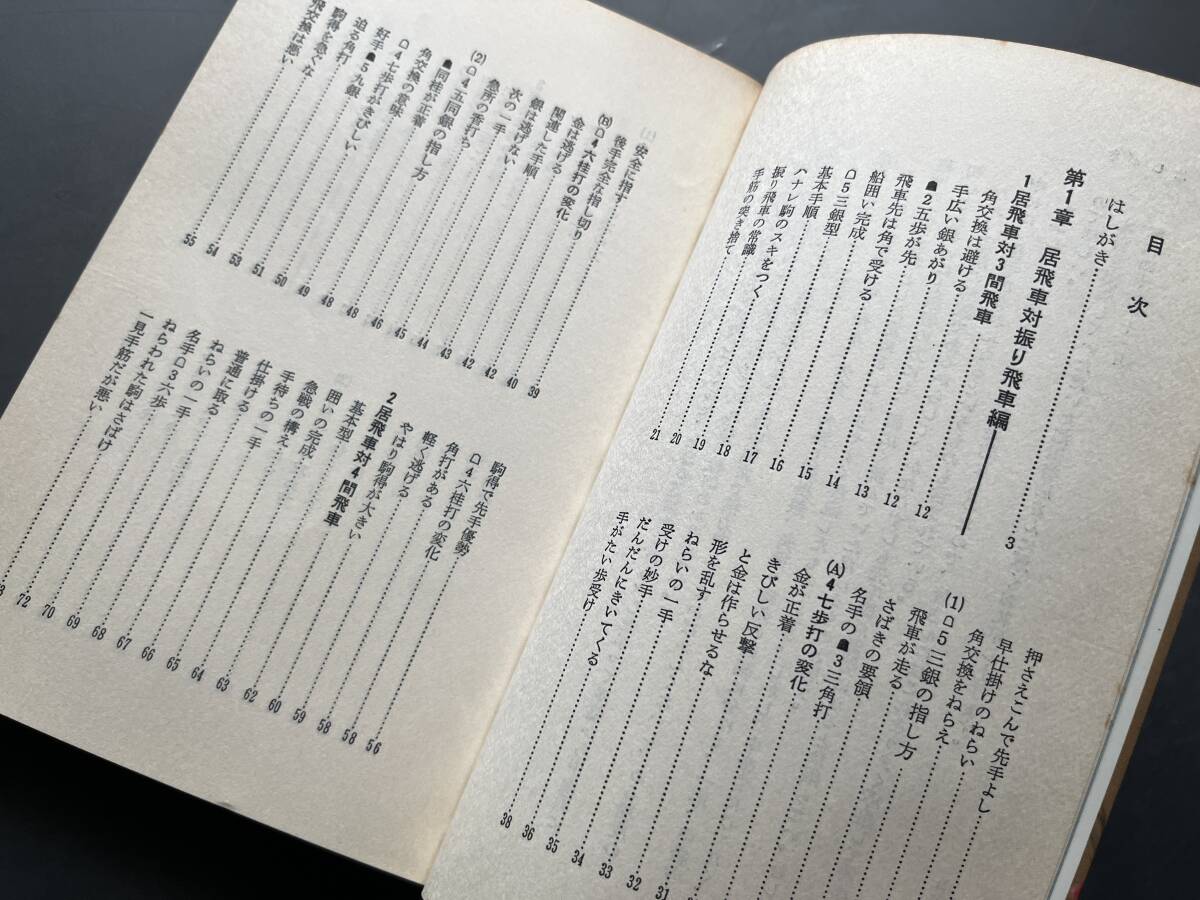 目次
はしがき……3
第1章 居飛車対振り飛車編
1 居飛車対3間飛車……12
角交換は避ける……12
手広い銀あがり……13
☗2五歩が先……14
飛車先は角で受ける……15
船囲い完成……16
☖5三銀型……17
基本手順……18
ハナレ駒のスキをつく……19
振り飛車の常識……20
手筋の突き捨て……21
押さえこんで先手よし
早仕掛けのねらい
角交換をねらえ
(1) ☖5三銀の指し方
飛車が走る
さばきの要領
名手の☗3三角打
(A) 4七歩打の変化
金が正着
きびしい反撃……31
と金は作らせるな……32
形を乱す……33
ねらいの一手……34
受けの妙手……35
だんだんにきいてくる……36
手がたい歩受け……38
安全に指す……39
後手完全な指し切り……40
(B) ☖4六桂打の変化……42
金は逃げる……42
関連した手順……43
銀は逃げない……44
次の一手……45
急所の香打ち……46
(2) ☖4五同銀の指し方……48
☗同桂が正着……48
角交換の意味……49
☖4七歩打がきびしい……50
好手☗5九銀……51
迫る角打……53
駒得を急ぐな……54
飛交換は悪い……55
駒得で先手優勢……56
☖4六桂打の変化……58
角打がある……58
軽く逃げる……59
やはり駒得が大きい……60
2 居飛車対4間飛車……62
基本型……63
囲いの完成……64
急戦の構え……65
手待ちの一手……66
仕掛ける……67
普通に取る……68
ねらいの一手……69
名手☖3六歩……70
ねらわれた駒はさばけ……72
一見手筋だが悪い……3